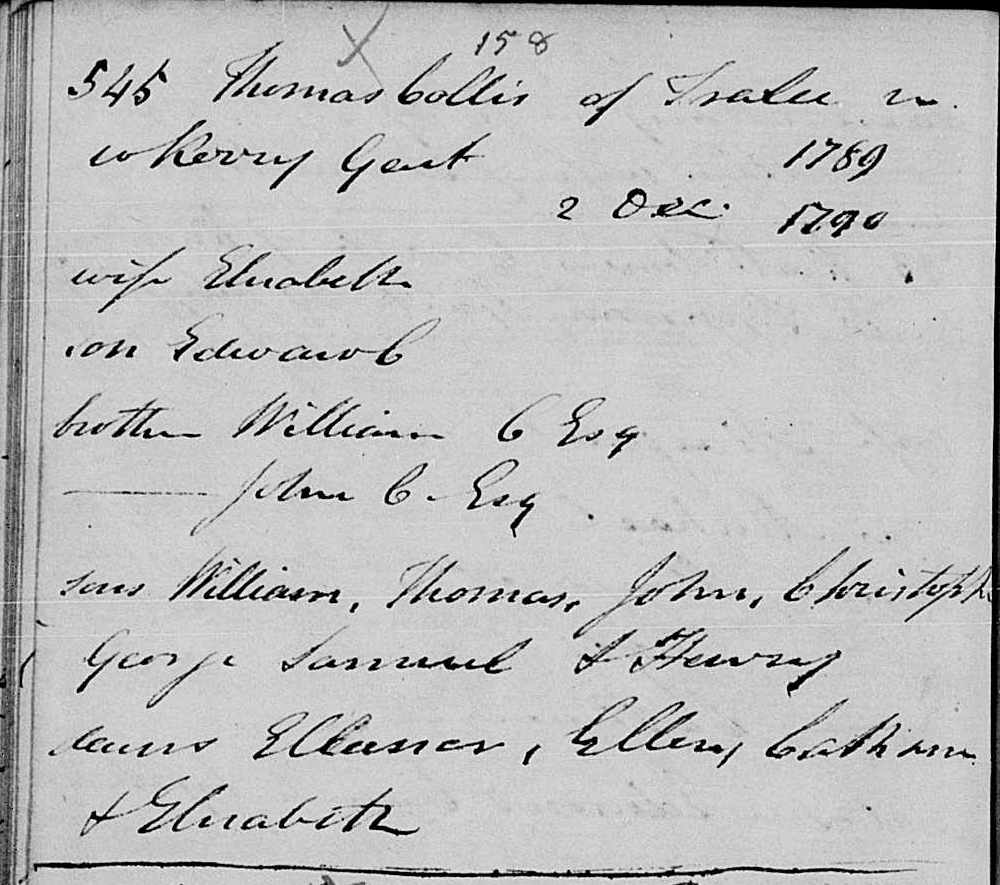 158
545 Thomas Collis of Tralee in
co Kerry Gent 1789
2 Dec. 1790
wife Elizabeth
son Edward C
brother William C Esq
—— John C. Esq
sons William, Thomas, John, Christoph
George Samuel & Henry
daurs Elleanor, Ellen, Catharin
& Elizabeth